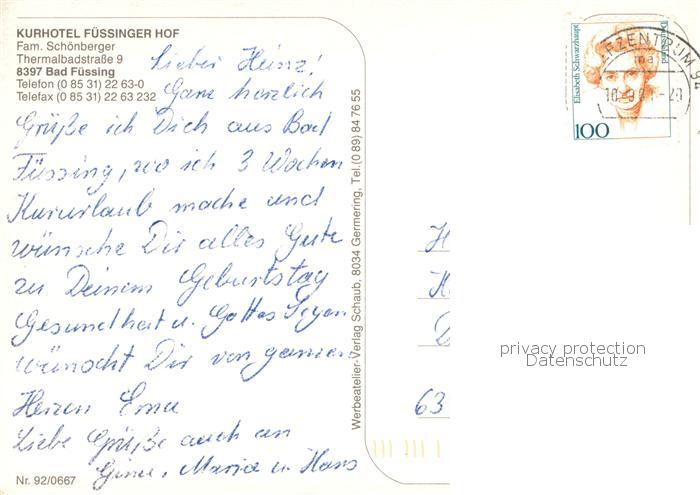 KURHOTEL FÜSSINGER HOF
Fam. Schönberger
Thermalbadstraße 9
8397 Bad Füssing
Telefon (0 85 31) 22 63-0
Telefax (0 85 31) 22 63 232
Lieber Heinz!
Ganz herzlich
Grüße ich Dich aus Bad
Füssing, wo ich 3 Wochen
Kururlaub mache und
wünsche Dir alles Gute
zu Deinem Geburtstag
Gesundheit u. Gottes Segen
wünscht Dir von ganzen
Herzen Erna
Liebe Grüße auch an
Maria u. Hans
Nr. 92/0667
Werbeatelier-Verlag Schaub, 8034 Germering, Tel. (0 89) 84 76 55
Elisabeth Schwarzhaupt
Deutsche
100
FZENTRUM 94
H
D
63
privacy protection
Datenschutz